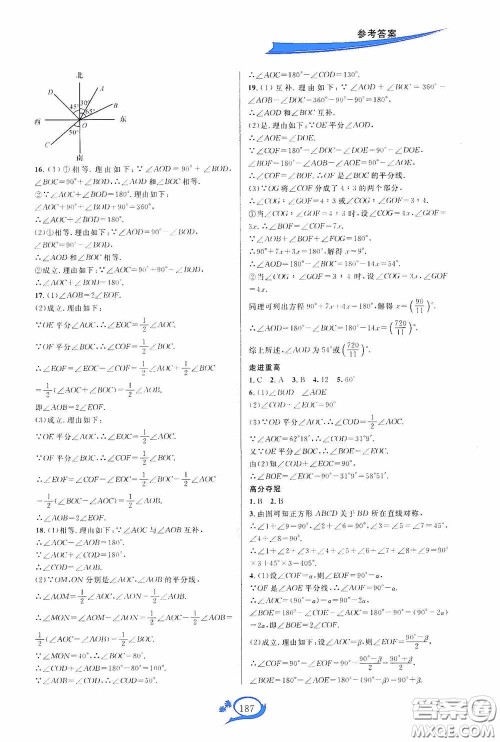 参考答案
北
A
D
45° 30°
65°
B
西
O
东
50°
C
南
16. (1)①相等. 理由如下：∵∠AOD=90°+∠BOD,
∠BOC=90°+∠BOD, ∴∠AOD和∠BOC相等.
②成立. 理由如下：
∠AOC+90°+∠BOD+90°=360°,
∴∠AOC+∠BOD=180°.
(2)①相等. 理由如下：∵∠AOD=90°-∠BOD,
∠BOC=90°-∠BOD,
∴∠AOD和∠BOC相等.
②成立. 理由如下：∵∠AOC=90°+90°-∠BOD,
∴∠AOC+∠BOD=180°.
17. (1)∠AOB=2∠EOF.
(2)成立. 理由如下：
∵OE平分∠AOC, ∴∠EOC=1/2∠AOC.
∵OF平分∠BOC, ∴∠COF=1/2∠BOC,
∴∠AOB=∠AOC+∠BOC, ∴∠EOF=∠EOC+∠COF
=1/2(∠AOC+∠BOC)=1/2∠AOB,
即∠AOB=2∠EOF.
(3)成立. 理由如下：
∵OE平分∠AOC, ∴∠EOC=1/2∠AOC.
∵OF平分∠BOC, ∴∠COF=1/2∠BOC,
=1/2(∠BOC-∠AOC)=1/2∠AOB,
∴∠AOB=2∠EOF.
18. (1)理由如下：∵∠AOC与∠AOB互补,
∴∠AOC+∠AOB=180°.
∵∠AOC+∠COD=180°,
∴∠COD=∠AOB.
(2)∵OM,ON分别是∠AOC,∠AOB的平分线,
∴∠AOM=1/2∠AOC, ∠AON=1/2∠AOB,
∴∠MON=1/2∠AOC-1/2∠AOB
=1/2(∠AOC-∠AOB)=1/2∠BOC.
∵∠MON=40°, ∴∠BOC=80°,
∴∠COD+∠AOB=180°-80°=100°.
∵∠COD=∠AOB, ∴∠COD=50°,
∴∠AOC=180°-∠COD=130°.
19. (1)互补. 理由如下：∵∠AOD+∠BOC=360°-
∠AOB-∠DOC=360°-90°-90°=180°,
∴∠AOD和∠BOC互补.
(2)是. 理由如下：∵OE平分∠AOD,
∴∠AOE=∠DOE.
∵∠COF=180°-∠DOC-∠DOE=90°-∠DOE,
∠BOF=180°-∠AOB-∠AOE=90°-∠AOE,
∴∠COF=∠BOF, 即OF是∠BOC的平分线.
(3)∵OG将∠COF分成了4：3的两个部分,
∴∠COG：∠GOF=4：3或∠COG：∠GOF=3：4.
①当∠COG：∠GOF=4：3时, 设∠COG=4x°, ∠GOF=
3x°, ∴∠BOF=∠COF=7x°.
∵∠AOB+∠BOF+∠FOG=180°,
∴90°+7x+3x=180°, 解得x=9°,
∴∠AOD=180°-∠BOC=180°-14x=54°.
②当∠COG：∠GOF=3：4时, 设∠COG=3x°, ∠GOF=
4x°.
同理可列出方程90°+7x+4x=180°, 解得x=(90/11)°,
∴∠AOD=180°-∠BOC=180°-14x=(720/11)°.
综上所述, ∠AOD为54°或(720/11)°.
走进重高
1. C 2. A 3. B 4. 12 5. 60°
6. (1)∠BOD ∠AOE
(2)∠COD+∠EOC=90°
(3)∵OD平分∠AOC, ∴∠COD=1/2∠AOC.
∵∠AOC=62°18′, ∴∠COD=31°9′.
又∵OE平分∠BOC, ∴∠BOE=∠EOC.
由(2)知∠COD+∠EOC=90°,
∴∠BOE=∠EOC=90°-31°9′=58°51′.
高分夺冠
1. B 2. B
3. 由图可知正方形ABCD关于BD所在直线对称,
∴∠1+∠9=90°, ∠2+∠6=90°, ∠3=∠5=∠7=45°,
∠4+∠8=90°.
∴∠1+∠2+∠3+∠4+∠5+∠6+∠7+∠8+∠9=90°
×3+45°×3=405°.
4. (1)设∠COF=α, 则∠EOF=90°-α.
∵OF是∠AOE平分线,
∴∠AOF=90°-α, ∴∠AOC=90°-α-α=90°-2α,
∠BOE=180°-∠COE-∠AOC=180°-90°-(90°-2α)
=2α, 即∠BOE=2∠COF.
(2)成立. 理由：设∠AOC=β, 则∠AOF=(90°-β)/2,
∴∠COF=90°-(90°-β)/2=(90°+β)/2,
∴∠BOE=180°-∠AOE=180°-(90°-β)=90°+β,
187
答案圈
MXQE.COM